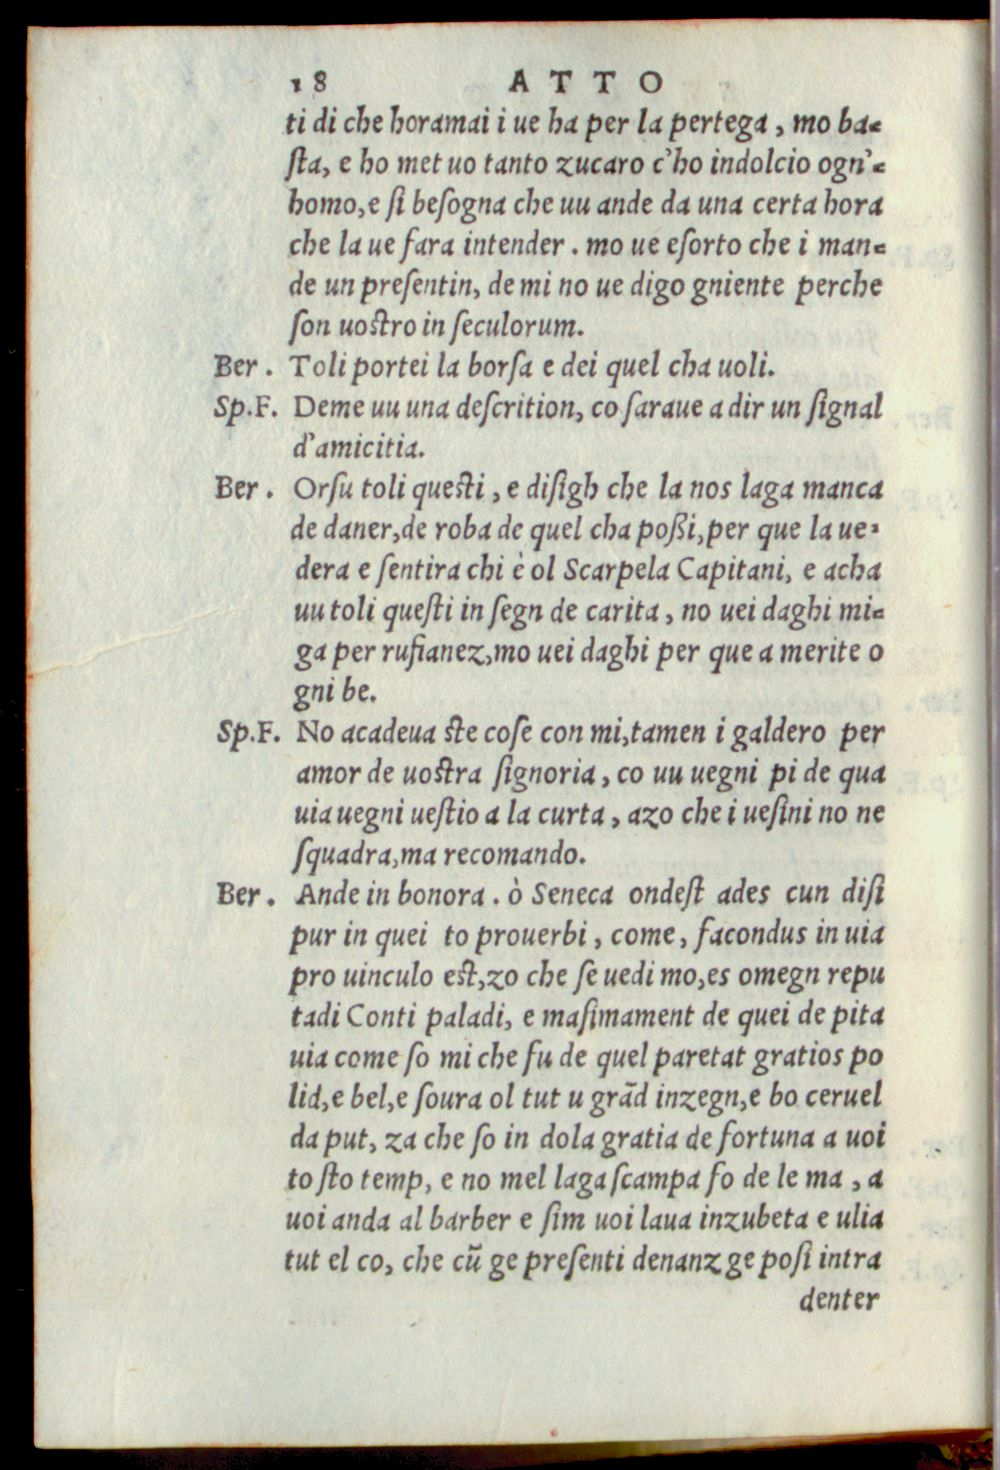 18 ATTO
ti di che horamai i ue ha per la pertega, mo ba-
ſta, e ho met uo tanto zucaro c'ho indolcio ogn'-
homo, e ſi beſogna che uu ande da una certa hora
che la ue fara intender. mo ue eſorto che i man-
de un preſentin, de mi no ue digo gniente perche
ſon uoſtro in ſeculorum.
Ber. Toli portei la borſa e dei quel cha uoli.
Sp.F. Deme uu una deſcrition, co ſaraue a dir un ſignal
d'amicitia.
Ber. Orſu toli queſti, e diſigh che la nos laga manca
de daner, de roba de quel cha poßi, per que la ue-
dera e ſentira chi è ol Scarpela Capitani, e acha
uu toli queſti in ſegn de carita, no uei daghi mi-
ga per rufianez, mo uei daghi per que a merite o
gni be.
Sp.F. No acadeua ſte coſe con mi, tamen i galdero per
amor de uoſtra ſignoria, co uu uegni pi de qua
uia uegni ueſtio a la curta, azo che i ueſini no ne
ſquadra, ma recomando.
Ber. Ande in bonora. ò Seneca ondeſt ades cun diſi
pur in quei to prouerbi, come, facondus in uia
pro uinculo eſt, zo che ſe uedi mo, es omegn repu
tadi Conti paladi, e maſimament de quei de pita
uia come ſo mi che fu de quel paretat gratios po
lid, e bel, e ſoura ol tut u grād inzegn, e bo ceruel
da put, za che ſo in dola gratia de fortuna a uoi
to ſto temp, e no mel laga ſcampa fo de le ma, a
uoi anda al barber e ſim uoi laua inzubeta e ulia
tut el co, che cū ge preſenti denanz ge poſi intra
denter